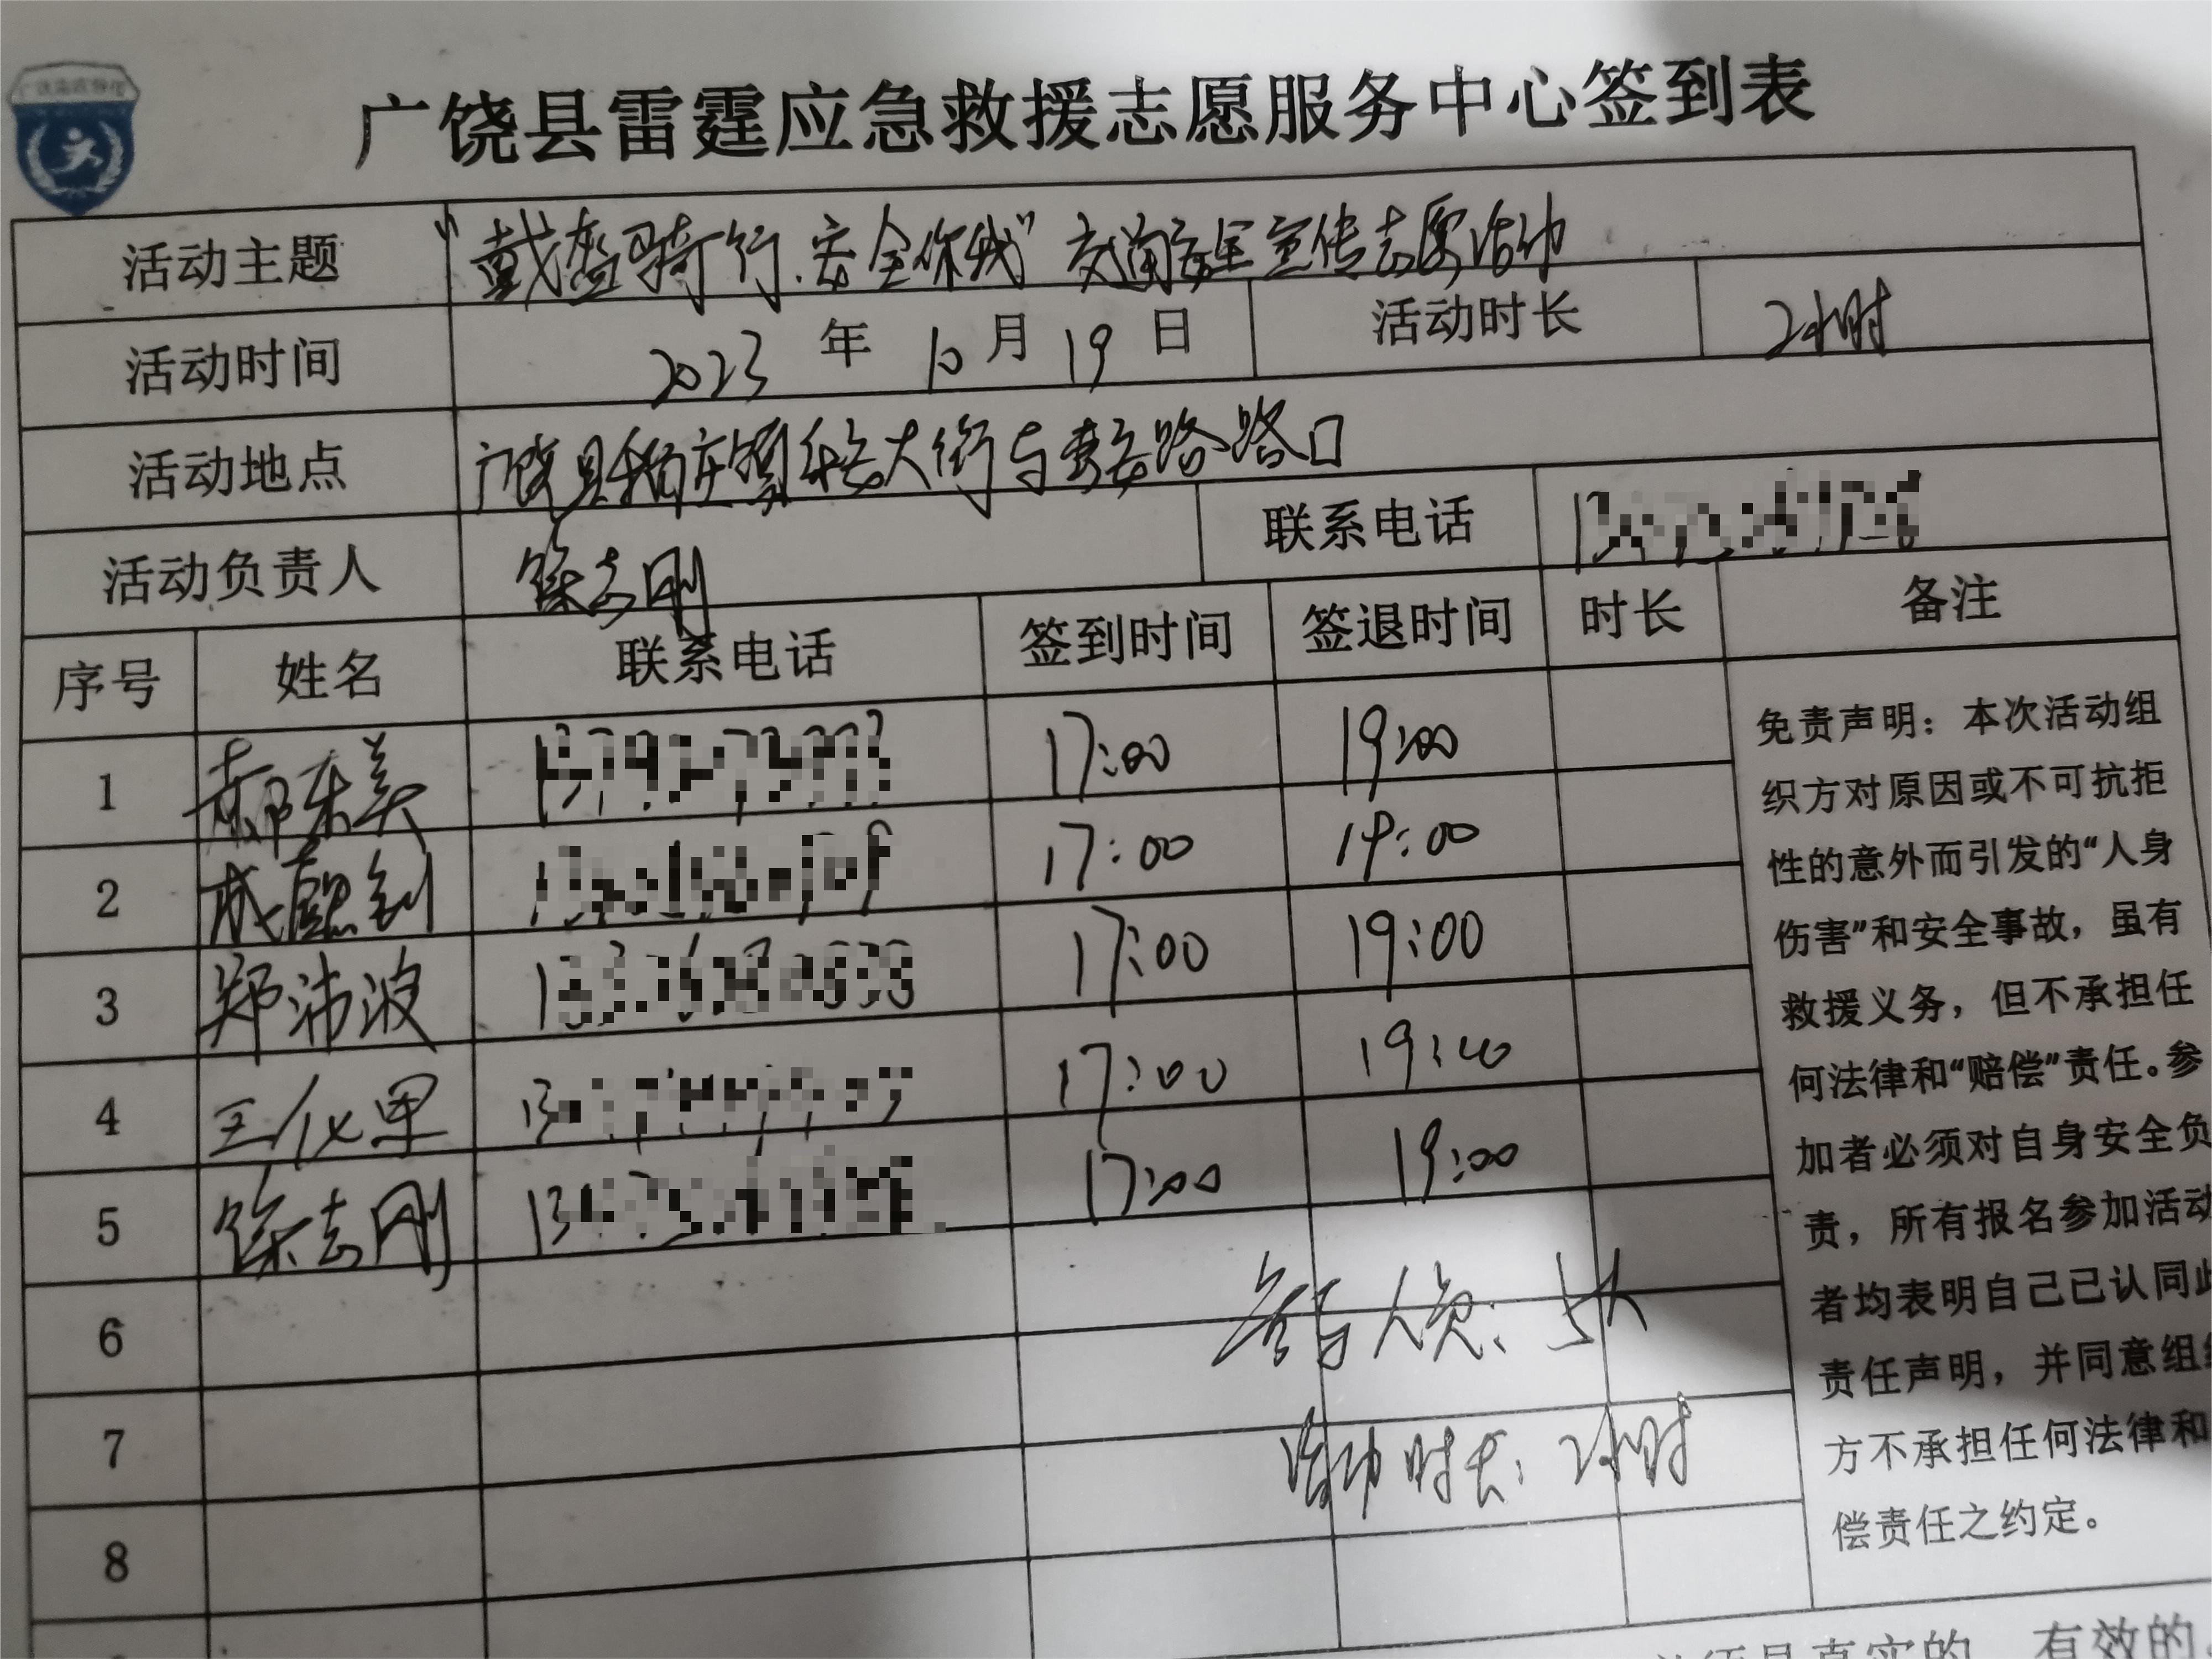 广饶县雷霆应急救援志愿服务中心签到表
活动主题 “戴盔骑行.安全你我”交通安全宣传志愿活动
活动时间 2023年10月19日 活动时长 2小时
活动地点 广饶县稻庄镇 大街与 路路口
活动负责人 徐志刚 联系电话
序号 姓名 联系电话 签到时间 签退时间 时长 备注
1 郝东美 17:00 19:00
2 成 剑 17:00 19:00
3 郑沛波 17:00 19:00
4 王 17:00 19:00
5 徐志刚 17:00 19:00
6
7
8
参与人员：5人
活动时长：2小时
免责声明：本次活动组
织方对原因或不可抗拒
性的意外而引发的“人身
伤害”和安全事故，虽有
救援义务，但不承担任
何法律和“赔偿”责任。参
加者必须对自身安全负
责，所有报名参加活动
者均表明自己已认同此
责任声明，并同意组织
方不承担任何法律和
偿责任之约定。
须是真实的、有效的